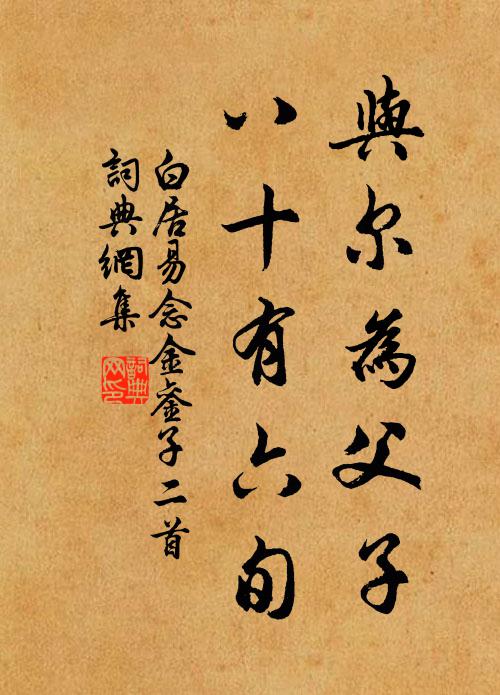 與尔為父子
八十有六旬
白居易念金銮子二首
詞典網集
詞典
网印